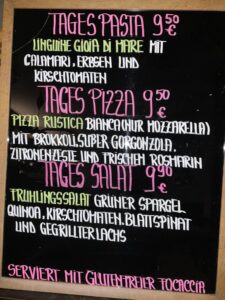 TAGES PASTA 9 50 €
LINGUINE GIOIA DI MARE MIT
CALAMARI, ERBSEN UND
KIRSCHTOMATEN
TAGES PIZZA 9 50 €
PIZZA RUSTICA BIANCA (NUR MOZZARELLA)
MIT BROKKOLI, SUPER GORGONZOLA,
ZITRONENZESTE UND FRISCHEN ROSMARIN
TAGES SALAT 9 90 €
FRÜHLINGSSALAT GRÜNER SPARGEL
QUINOA, KIRSCHTOMATEN, BLATTSPINAT
UND GEGRILLTER LACHS
SERVIERT MIT GLUTENFREIER FOCACCIA